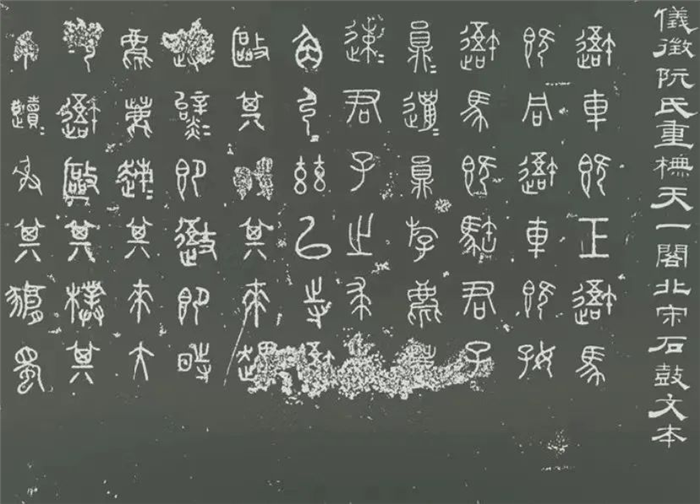 儀徵阮氏重橅天一閣北宋石鼓文本
吾車既工吾馬
既同吾車既好
吾馬既駐君子
員邋員斿麀鹿
速君子之求
角弓茲以寺吾
敺其其來趩
即即時
麀鹿趚其來大
吾敺其樸其
來射其豜蜀